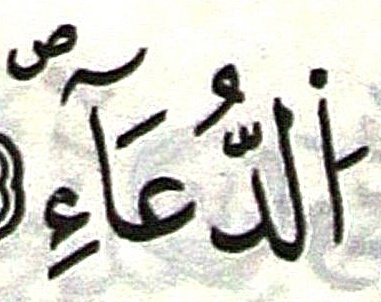 اَ۬لدُّعَآءِۖ